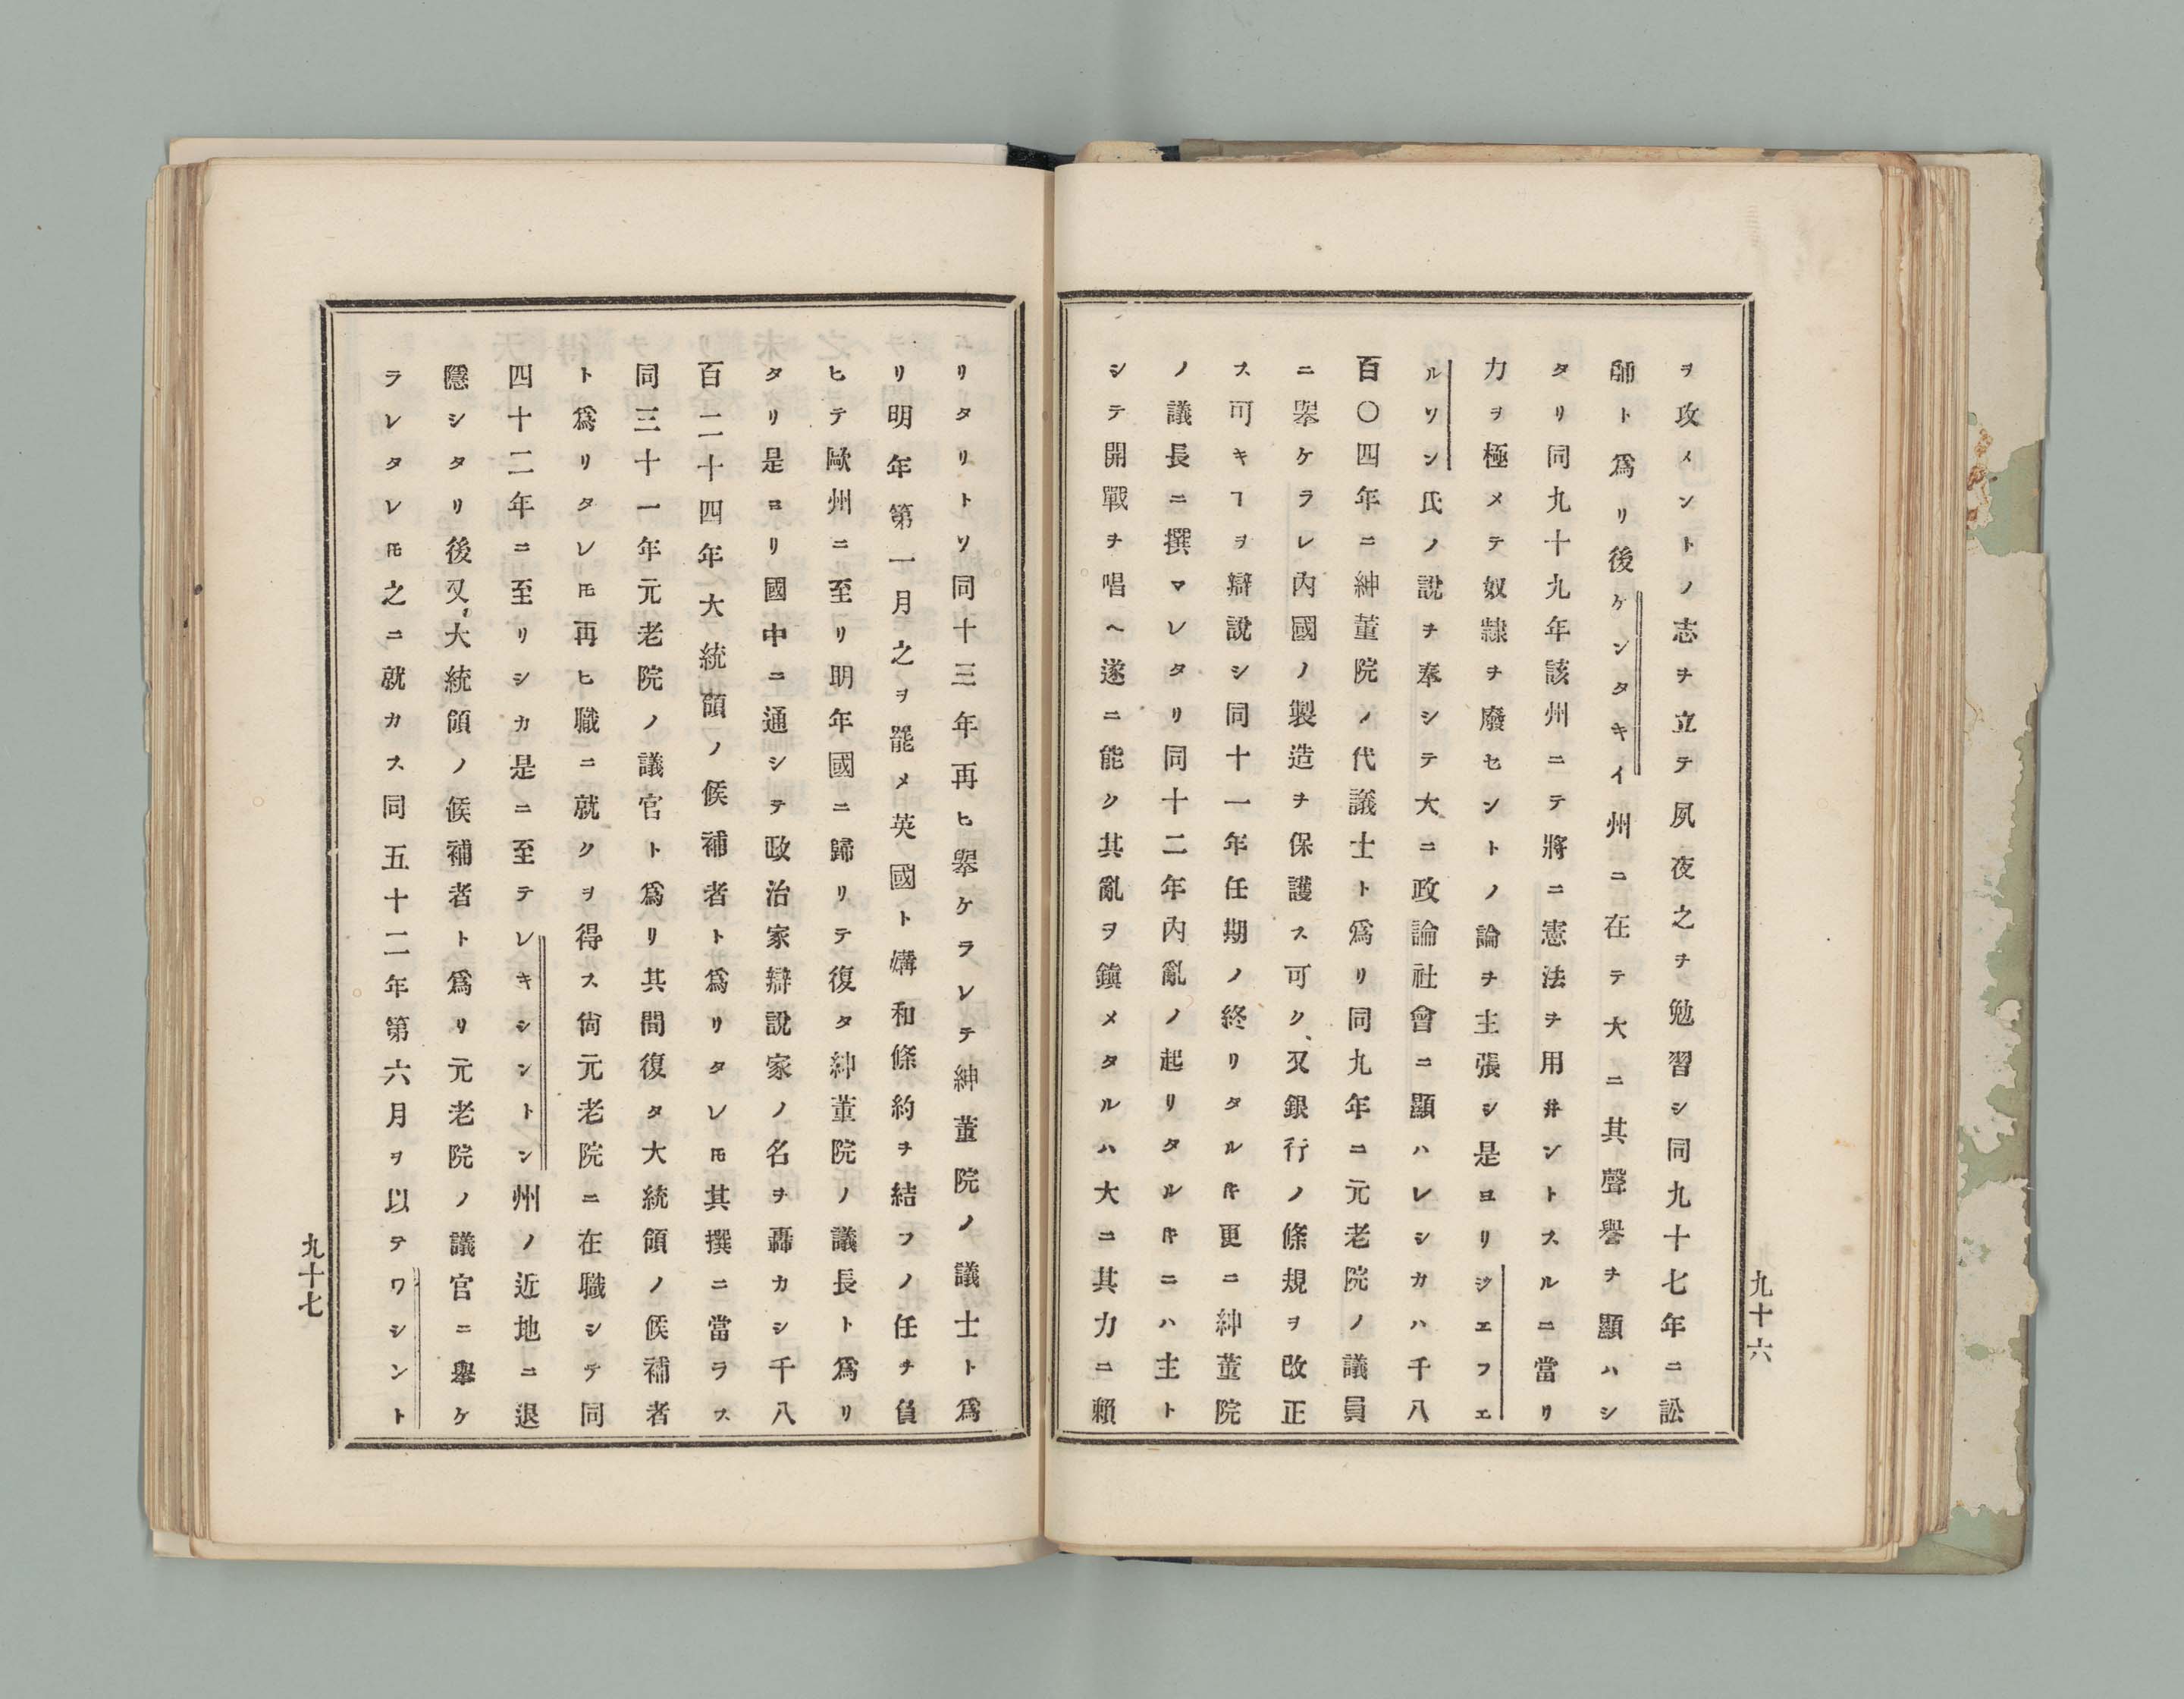 ヲ攻メントノ志ヲ立テ夙夜之ヲ勉習シ同九十七年ニ訟
師ト爲リ後ケンタキイ州ニ在テ大ニ其聲譽ヲ顯ハシ
タリ同九十九年該州ニテ將ニ憲法ヲ用井ントスルニ當リ
力ヲ極メテ奴隷ヲ廢セントノ論ヲ主張シ是ヨリジエフエ
ルソン氏ノ說ヲ奉シテ大ニ政論社會ニ顯ハレシカハ千八
百〇四年ニ紳董院ノ代議士ト爲リ同九年ニ元老院ノ議員
ニ擧ケラレ內國ノ製造ヲ保護ス可ク、又銀行ノ條規ヲ改正
ス可キヿヲ辯說シ同十一年任期ノ終リタルキ更ニ紳董院
ノ議長ニ撰マレタリ同十二年內亂ノ起リタルキニハ主ト
シテ開戰ヲ唱へ遂ニ能ク其亂ヲ鎭メタルハ大ニ其力ニ賴
九十六
リタリトソ同十三年再ヒ擧ケラレテ紳董院ノ議士ト爲
リ明年第一月之ヲ罷メ英國ト媾和條約ヲ結フノ任ヲ負
ヒテ歐州ニ至リ明年國ニ歸リテ復タ紳董院ノ議長ト爲リ
タリ是ヨリ國中ニ通シテ政治家辯說家ノ名ヲ轟カシ千八
百二十四年大統領ノ候補者ト爲リタレ𪜈其撰ニ當ラス
同三十一年元老院ノ議官ト爲リ其間復タ大統領ノ候補者
ト爲リタレ𪜈再ヒ職ニ就クヲ得ス尙元老院ニ在職シテ同
四十二年ニ至リシカ是ニ至テレキシントン州ノ近地ニ退
隱シタリ後又、大統領ノ候補者ト爲リ元老院ノ議官ニ擧ケ
ラレタレ𪜈之ニ就カス同五十二年第六月ヲ以テワシント
九十七